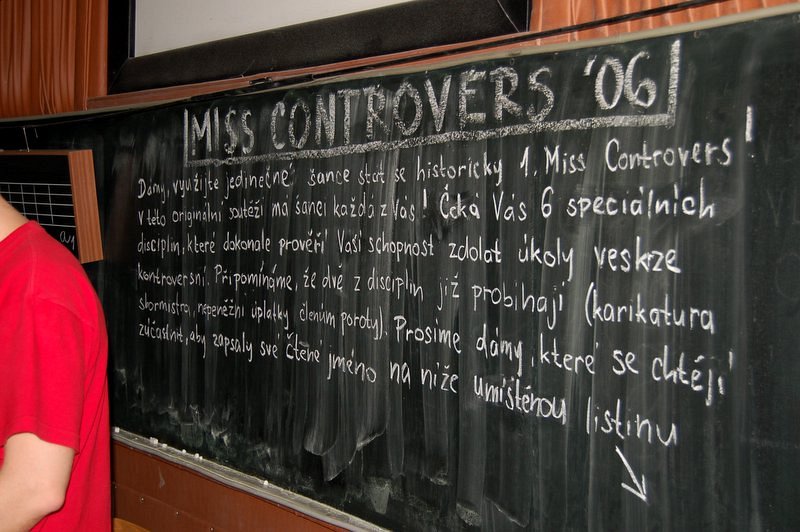 MISS CONTROVERS '06
Dámy, využijte jedinečné šance stát se historicky 1. Miss Controvers!
V této originální soutěži má šanci každá z Vás! Čeká Vás 6 speciálních
disciplin, které dokonale prověří Vaši schopnost zdolat úkoly veskrze
kontroversní. Připomínáme, že dvě z disciplin již probíhají (karikatura
sbormistra, nepeněžní úplatky členům poroty). Prosíme dámy, které se chtějí
zúčastnit, aby zapsaly své čtěné jméno na níže umístěnou listinu